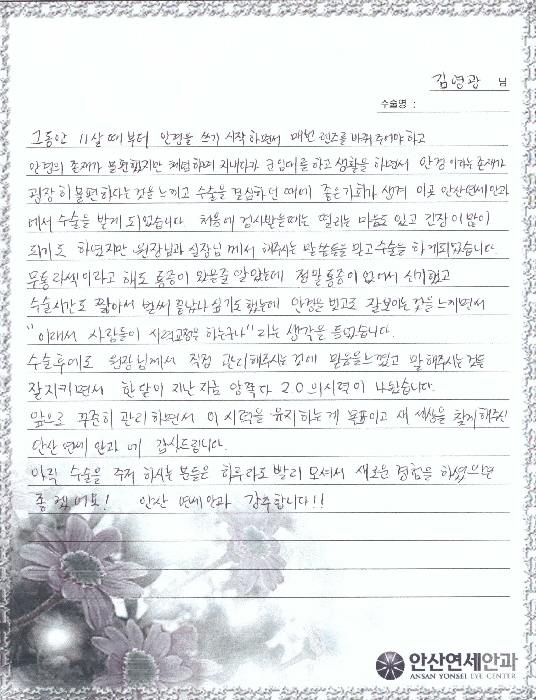 김영광 님
수술명 :
그동안 11살 때부터 안경을 쓰기 시작하면서 매번 렌즈를 바꿔 주어야 하고
안경의 존재가 불편했지만 체념하며 지내다가 군입대를 하고 생활을 하면서 안경이라는 존재가
굉장히 불편하다는 것을 느끼고 수술을 결심하던 때에 좋은기회가 생겨 이곳 안산연세안과
에서 수술을 받게 되었습니다. 처음에 검사받을때는 떨리는 마음도 있고 긴장이 많이
되기도 하였지만 원장님과 실장님께서 해주시는 말씀들을 믿고 수술을 하게되었습니다.
무통라섹이라고 해도 통증이 있을줄 알았는데 정말 통증이 없어서 신기했고
수술시간도 짧아서 벌써 끝났나 싶기도 했는데 안경을 벗고도 잘보이는 것을 느끼면서
"이래서 사람들이 시력교정을 하는구나" 라는 생각을 들었습니다.
수술후에도 원장님께서 직접 관리해주시는 것에 믿음을 느꼈고 말해주시는 것들
잘지키면서 한달이 지난 지금 양쪽다 2.0의 시력이 나왔습니다.
앞으로 꾸준히 관리하면서 이 시력을 유지하는게 목표이고 새 세상을 찾게해주신
안산 연세 안과에 감사드립니다.
아직 수술을 주저 하시는 분들은 하루라도 빨리 오셔서 새로운 경험을 하셨으면
좋겠어요! 안산 연세안과 강추합니다!!
안산연세안과
ANSAN YONSEI EYE CENTER